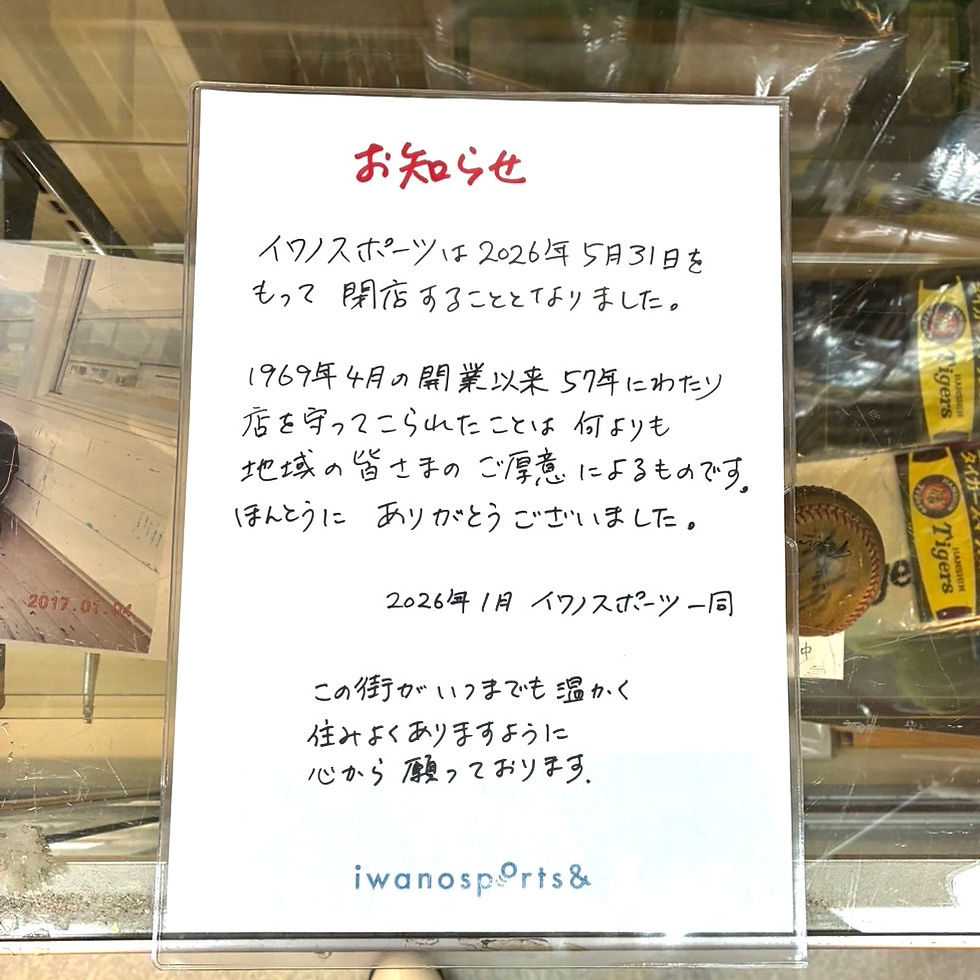 お知らせ
イワノスポーツは2026年5月31日を
もって 閉店することとなりました。
1969年4月の開業以来 57年にわたり
店を守ってこられたことは 何よりも
地域の皆さまの ご厚意によるものです。
ほんとうに ありがとうございました。
2026年1月 イワノスポーツ一同
この街がいつまでも温かく
住みよくありますように
心から願っております.
iwanosports&
2017.01.04
HANSHIN
Tigers
タイガ
HANSHIN
Tigers
中